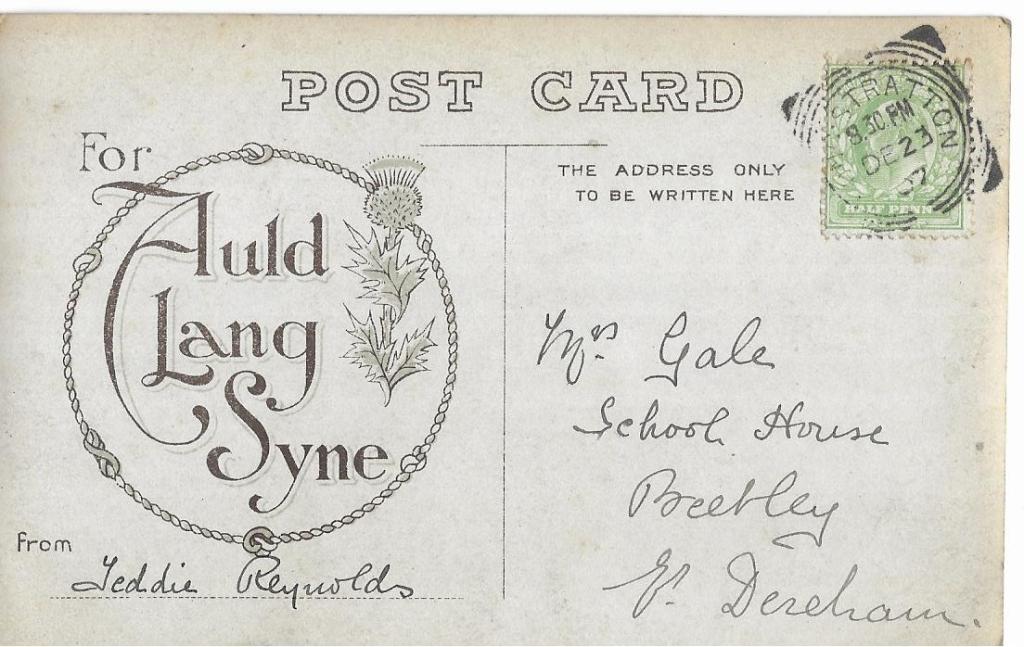 POST CARD
For
Auld
Lang
Syne
From
Teddie Reynolds
THE ADDRESS ONLY
TO BE WRITTEN HERE
STRATTON
8.30 PM
DE 23
07
HALF PENNY
Mrs Gale
School House
Beetley
Et. Dereham.